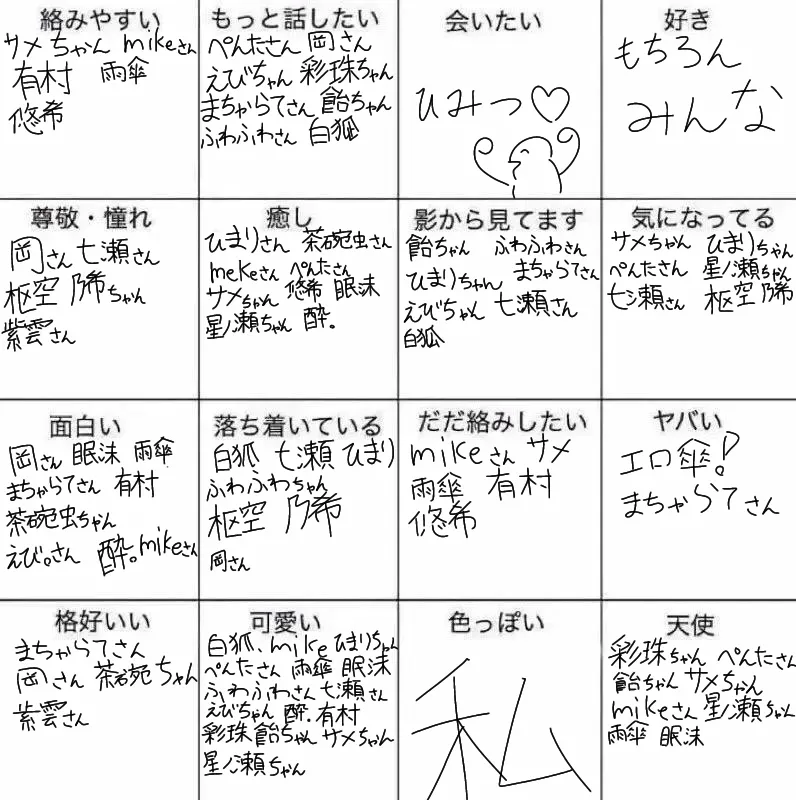 絡みやすい
サメちゃん mikeさん
有村 雨傘
悠希
もっと話したい
ぺんたさん 岡さん
えびちゃん 彩珠ちゃん
まちゃらてさん 飴ちゃん
ふわふわさん 白狐
会いたい
ひみつ♡
好き
もちろん
みんな
尊敬・憧れ
岡さん 七瀬さん
枢空 乃希ちゃん
紫雲さん
癒し
ひまりさん 茶碗虫さん
mekeさん ぺんたさん
サメちゃん 悠希 眠沫
星ノ瀬ちゃん 酔。
影から見てます
飴ちゃん ふわふわさん
ひまりちゃん まちゃらてさん
えびちゃん 七瀬さん
白狐
気になってる
サメちゃん ひまりちゃん
ぺんたさん 星ノ瀬ちゃん
七瀬さん 枢空 乃希
面白い
岡さん 眠沫 雨傘
まちゃらてさん 有村
茶碗虫ちゃん
えび。さん 酔。mikeさん
落ち着いている
白狐 七瀬 ひまり
ふわふわちゃん
枢空 乃希
岡さん
だだ絡みしたい
mikeさん サメ
雨傘 有村
悠希
ヤバい
エロ傘!?
まちゃらてさん
格好いい
まちゃらてさん
岡さん 茶碗ちゃん
紫雲さん
可愛い
白狐、mike ひまりちゃん
ぺんたさん 雨傘 眠沫
ふわふわさん 七瀬さん
えびちゃん 酔。有村
彩珠 飴ちゃん サメちゃん
星ノ瀬ちゃん
色っぽい
私
天使
彩珠ちゃん ぺんたさん
飴ちゃん サメちゃん
mikeさん 星ノ瀬ちゃん
雨傘 眠沫